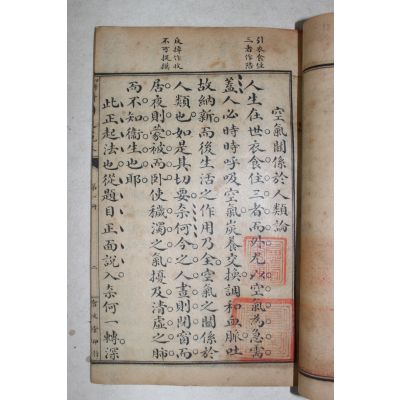 引衣食住
三者作陪
反掉作收
不可提撰
空氣關係於人類論
人生在世衣食住三者而外尤以空氣為急需
蓋人必時時呼吸空氣炭養交換調和血脈吐
故納新而後生活之作用乃全空氣之關係於
人類也如是其切要奈何今之人晝則閉窗而
居夜則蒙被而卧使穢濁之氣擾及清虛之肺
而不知衛生也耶
此正起法也從題目正面說入奈何一轉深
第一冊
二
會文堂印行